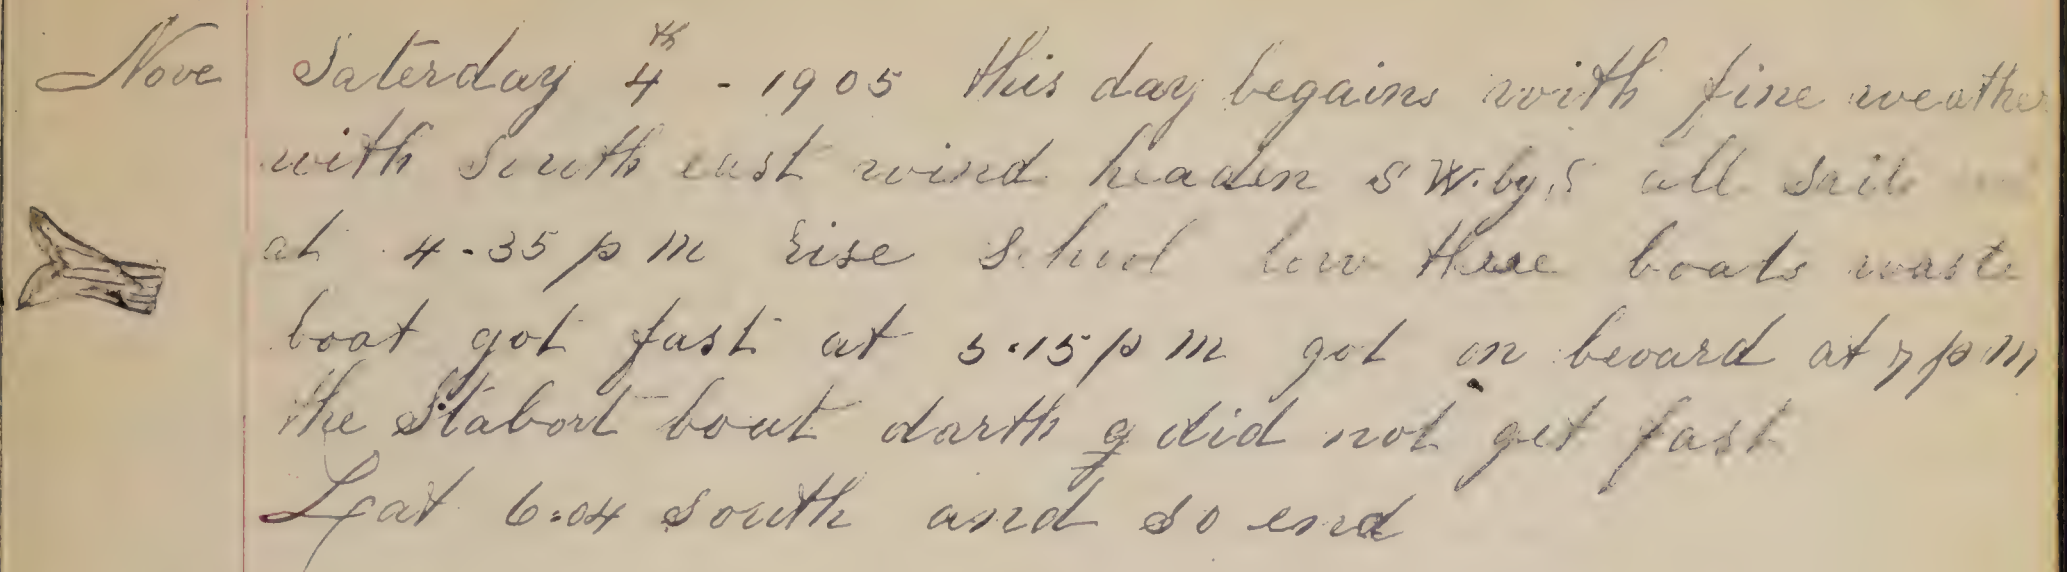 Nove Saterday 4th - 1905 this day begains with fine weather
with South east wind headen S W. by S all sail
at 4-35 p m rise School low three boats waste
boat got fast at 5.15 p m got on beoard at 7 p m
the Stabort bout darth did not get fast
Lat 6.04 South and so end